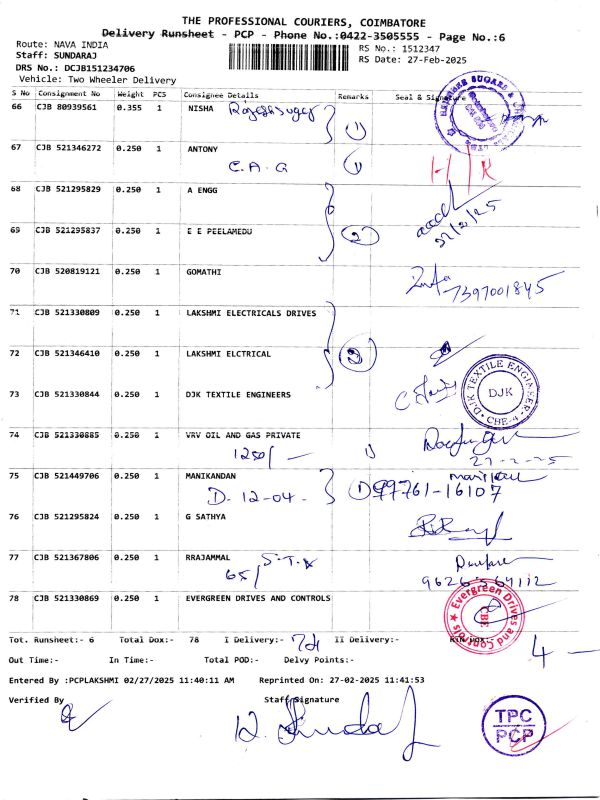 THE PROFESSIONAL COURIERS, COIMBATORE
Delivery Runsheet - PCP - Phone No.:0422-3505555 - Page No.:6
Route: NAVA INDIA
RS No.: 1512347
Staff: SUNDARAJ
RS Date: 27-Feb-2025
DRS No.: DCJB151234706
Vehicle: Two Wheeler Delivery
S No Consignment No Weight PCS Consignee Details Remarks Seal & Signature
66 CJB 80939561 0.355 1 NISHA
67 CJB 521346272 0.250 1 ANTONY
C.A.G
68 CJB 521295829 0.250 1 A ENGG
69 CJB 521295837 0.250 1 E E PEELAMEDU 2
70 CJB 520819121 0.250 1 GOMATHI
7397001845
71 CJB 521330809 0.250 1 LAKSHMI ELECTRICALS DRIVES
72 CJB 521346410 0.250 1 LAKSHMI ELCTRICAL 3
73 CJB 521330844 0.250 1 DJK TEXTILE ENGINEERS
DJK TEXTILE ENGINEER
DJK
CBE-4
74 CJB 521330885 0.250 1 VRV OIL AND GAS PRIVATE
1250/- 27-2-25
75 CJB 521449706 0.250 1 MANIKANDAN
D. 12-04. 1 99761-16107
76 CJB 521295824 0.250 1 G SATHYA
77 CJB 521367806 0.250 1 RRAJAMMAL
65/ 9626564112
78 CJB 521330869 0.250 1 EVERGREEN DRIVES AND CONTROLS
Evergreen Drives and Controls
CBE
Tot. Runsheet:- 6 Total Dox:- 78 I Delivery:- II Delivery:- 4
Out Time:- In Time:- Total POD:- Delvy Points:-
Entered By :PCPLAKSHMI 02/27/2025 11:40:11 AM Reprinted On: 27-02-2025 11:41:53
Verified By Staff Signature
TPC
PCP